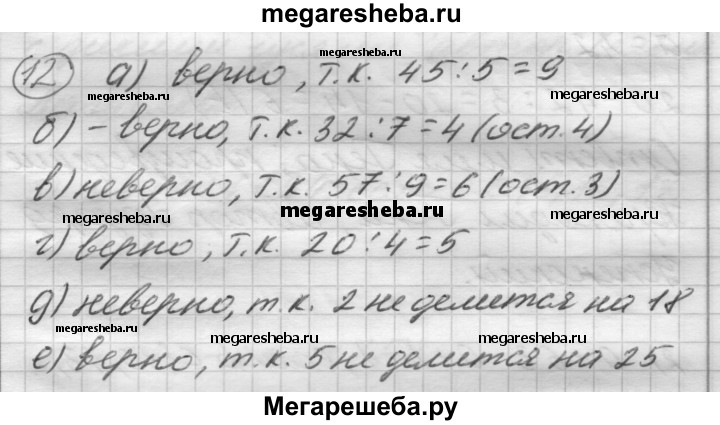 megaresheba.ru
megaresheba.ru
12 а) верно, т.к. 45:5=9
megaresheba.ru
megaresheba.ru
б) - верно, т.к. 32:7=4 (ост.4)
в) неверно, т.к. 57:9=6 (ост.3)
megaresheba.ru
megaresheba.ru
megaresheba.ru
г) верно, т.к. 20:4=5
д) неверно, т.к. 2 не делится на 18
megaresheba.ru
megaresheba.ru
е) верно, т.к. 5 не делится на 25
Мегарешеба.ру